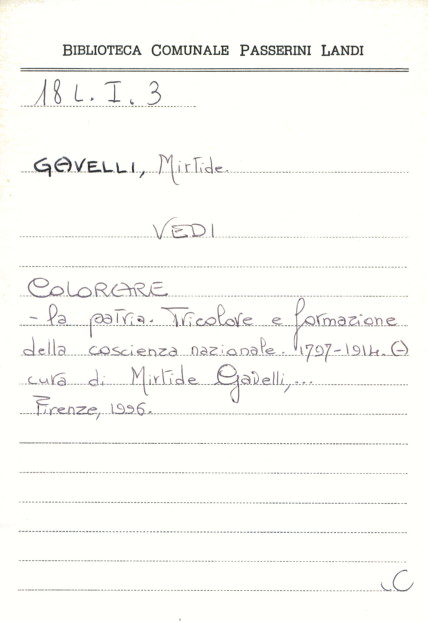 BIBLIOTECA COMUNALE PASSERINI LANDI
18 L. I. 3
GAVELLI, Mirtide.
VEDI
COLORARE
- la patria. Tricolore e formazione
della coscienza nazionale. 1797-1914. A
cura di Mirtide Gavelli,...
Firenze, 1996.